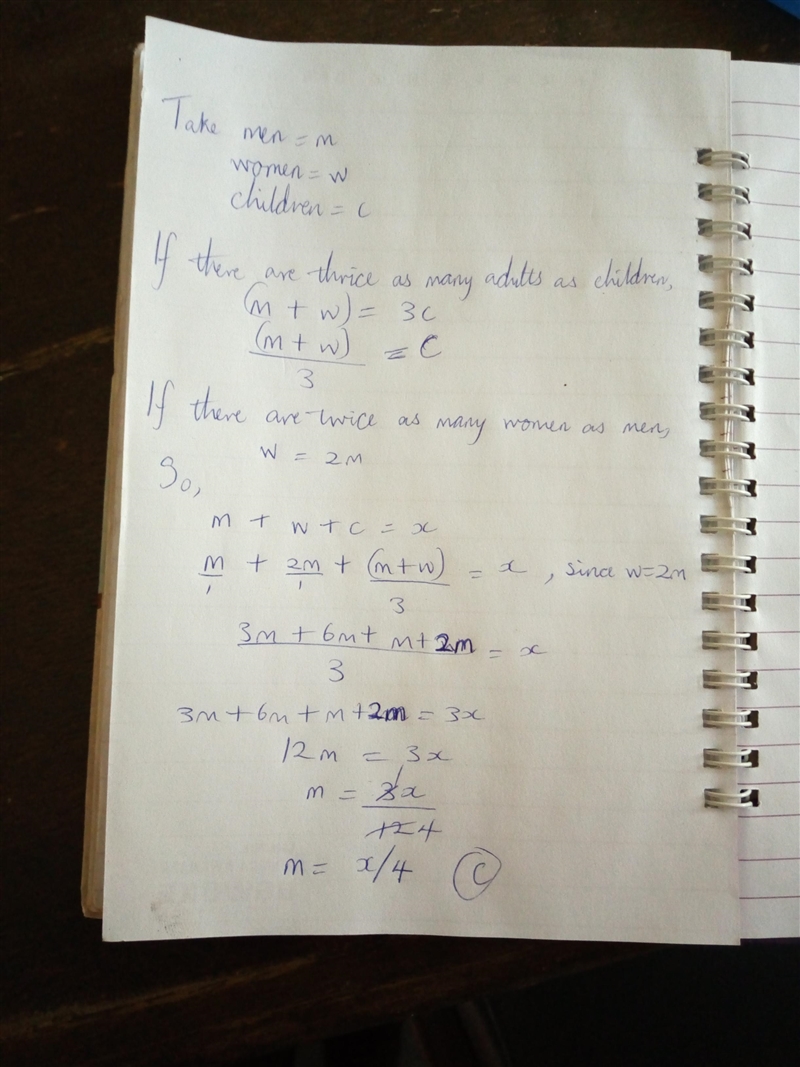 Take men = m
women = w
children = c
If there are thrice as many adults as children,
(m + w) = 3c
(m + w)/3 = c
If there are twice as many women as men,
w = 2m
So,
m + w + c = x
m/1 + 2m/1 + (m+w)/3 = x , since w=2m
3m + 6m + m + 2m/3 = x
3m + 6m + m + 2m = 3x
12m = 3x
m = 3x/12 1 4
m = x/4 (C)